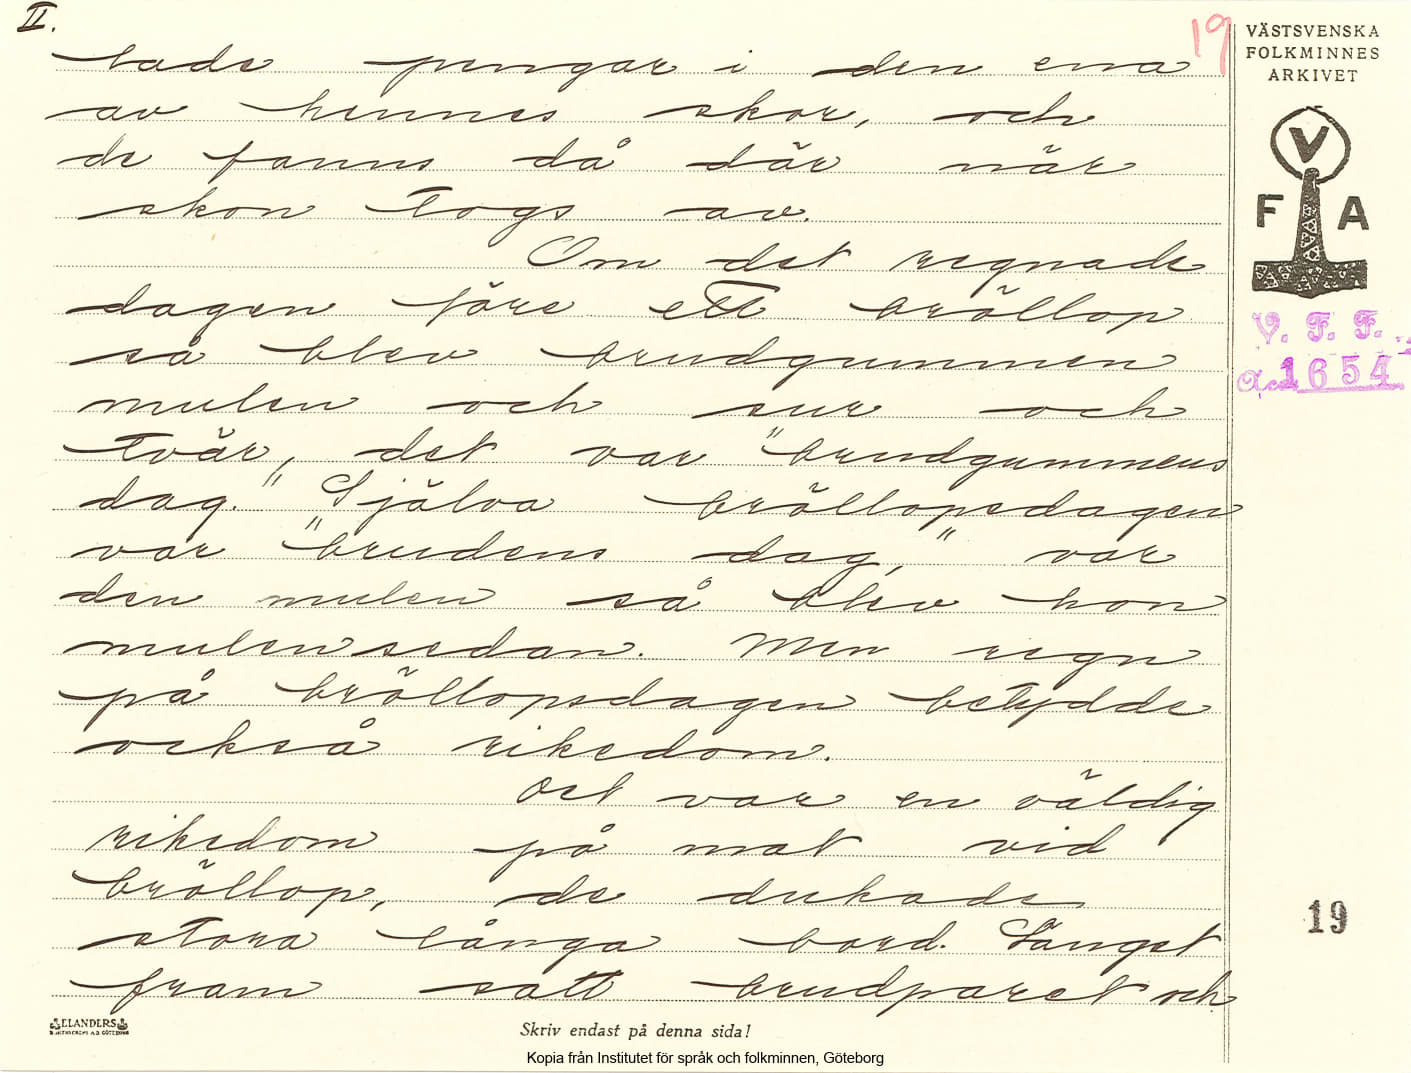 II.
19
VÄSTSVENSKA
FOLKMINNES
ARKIVET
V
F A
V. F. F.
Acc. 1654
bade pengar i den ena
av hennes skor, och
de fanns då där när
skon togs av.
Om det regnade
dagen före ett bröllop
så blev brudgummen
mulen och sur och
tvär, det var "brudgummens
dag." Själva bröllopsdagen
var "brudens dag," var
den mulen så blev hon
mulen sedan. Men regn
på bröllopsdagen betydde
också rikedom.
Det var en väldig
rikedom på mat vid
bröllop, de dukade
stora långa bord. Längst
fram satt brudparet och
19
ELANDERS
Skriv endast på denna sida!
Kopia från Institutet för språk och folkminnen, Göteborg